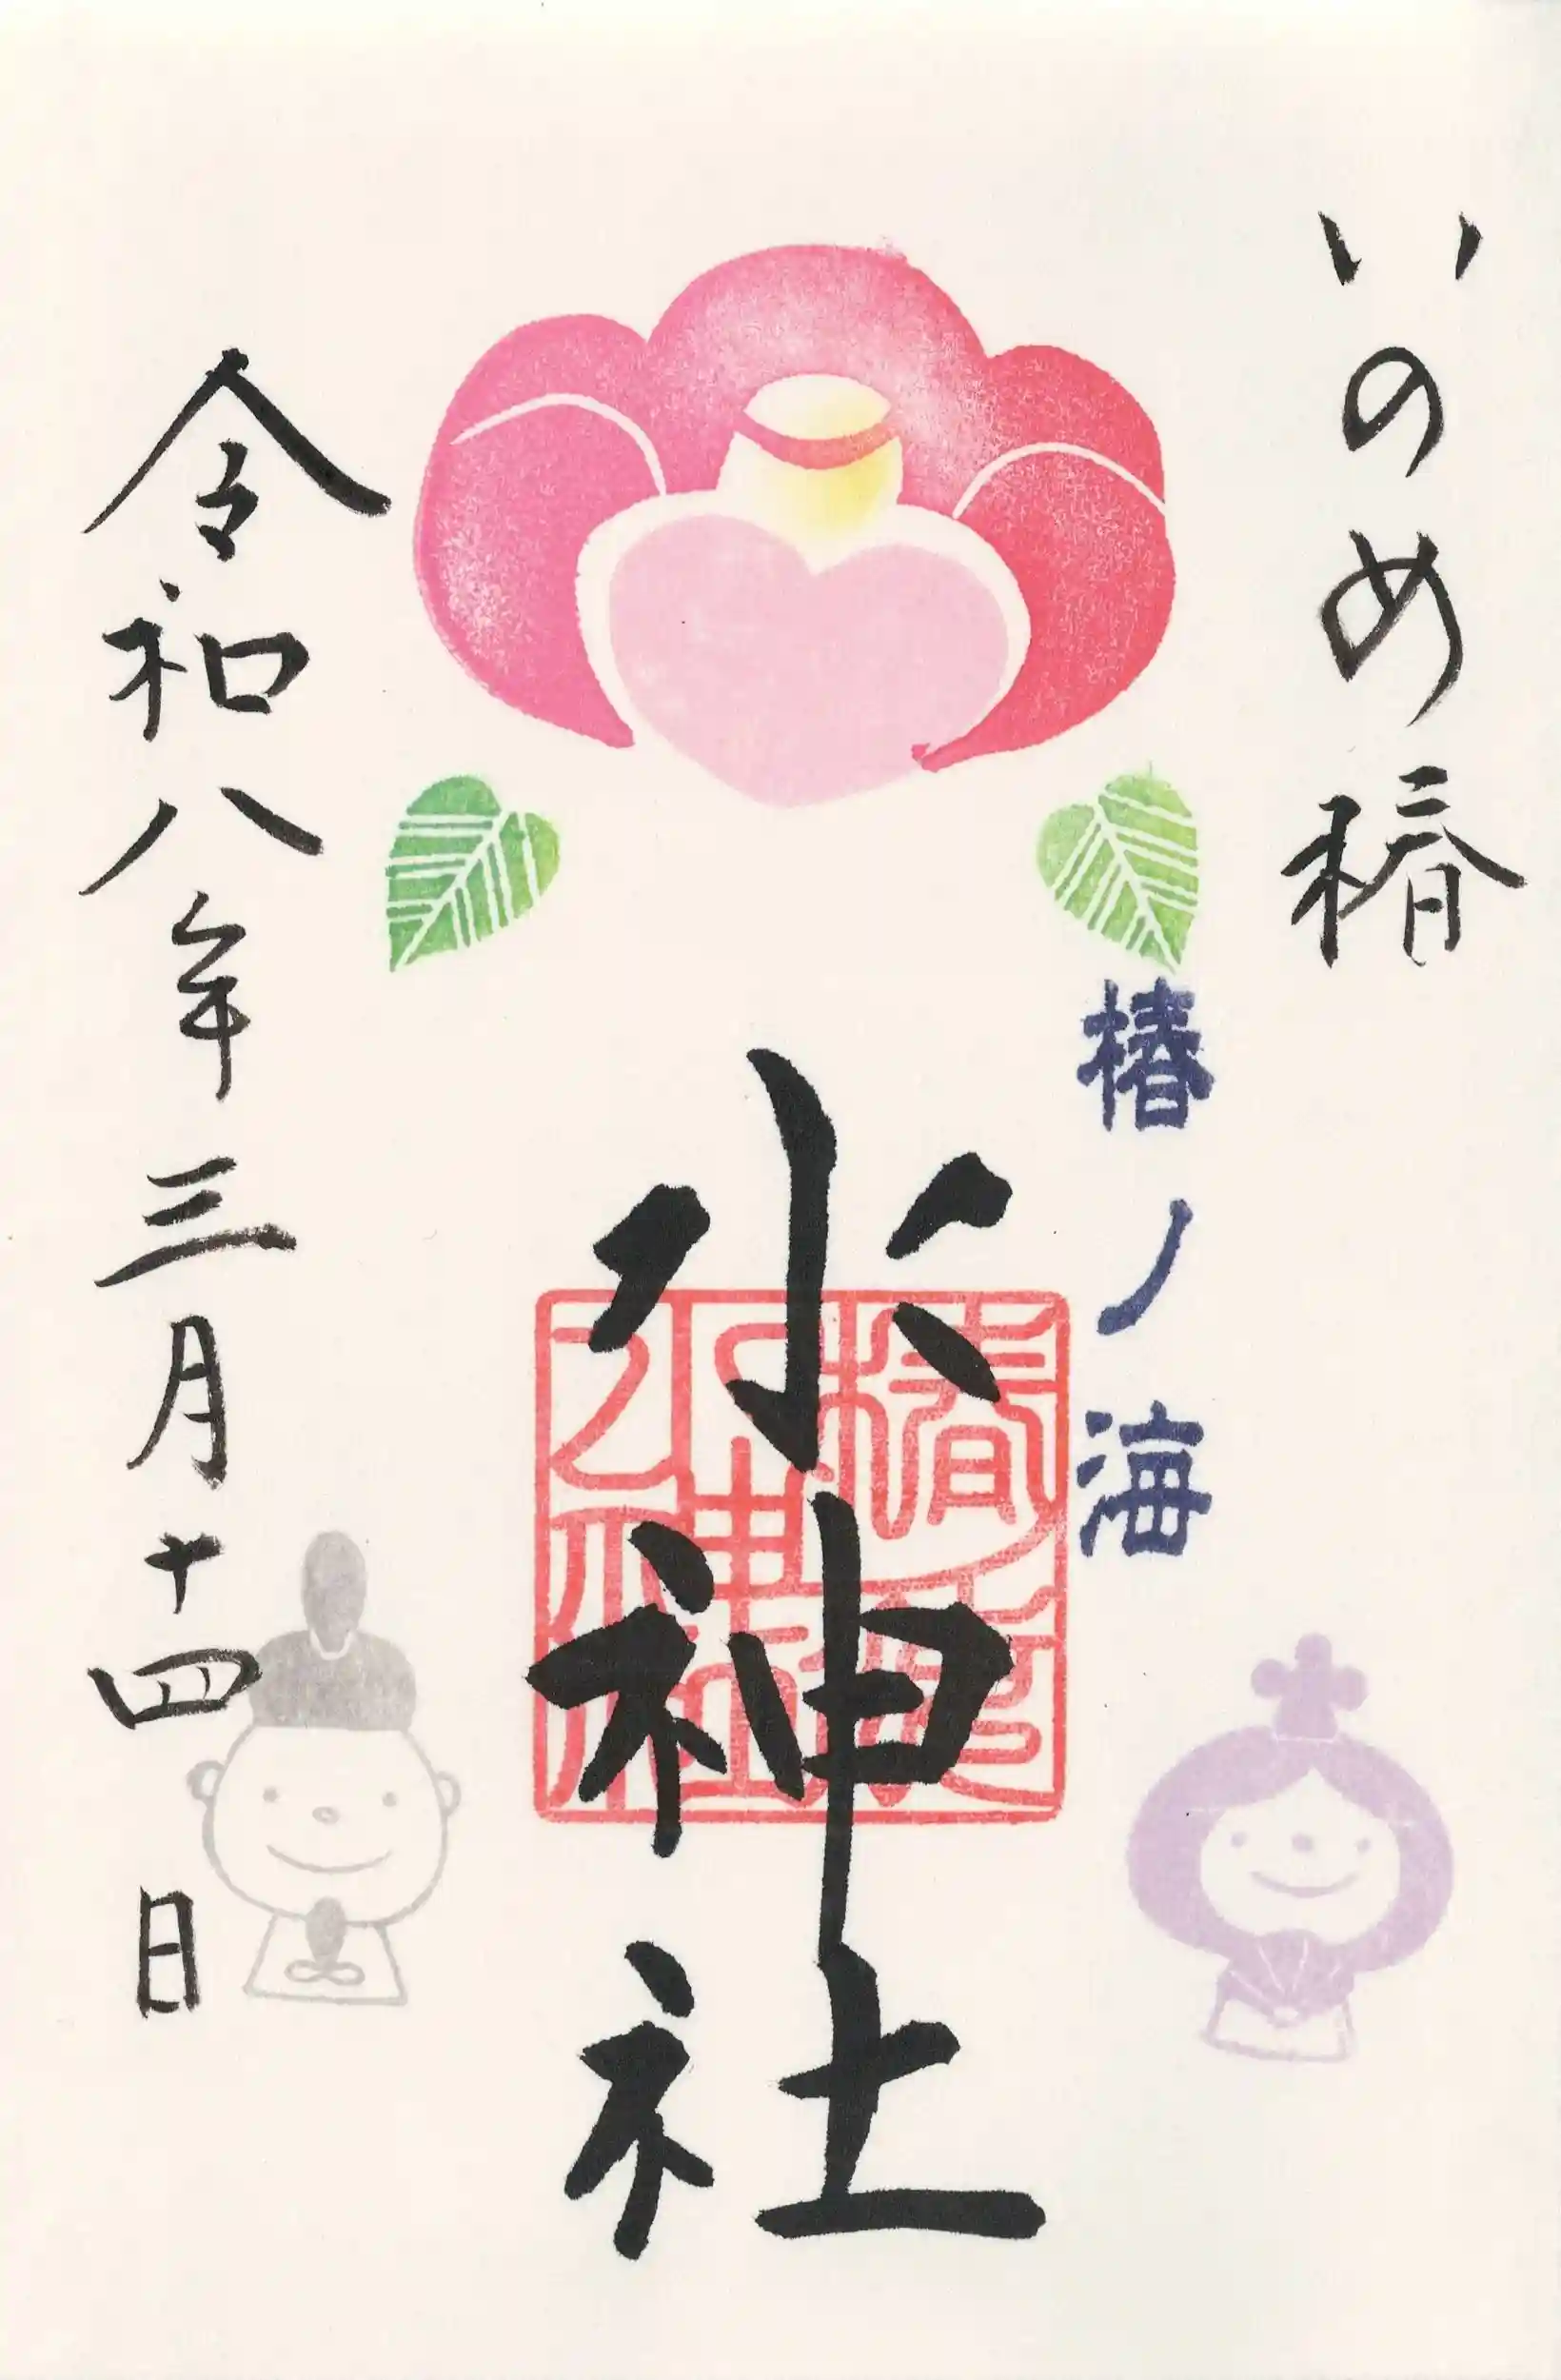 いのめ椿
椿ノ海
水神社
令和八年三月十四日